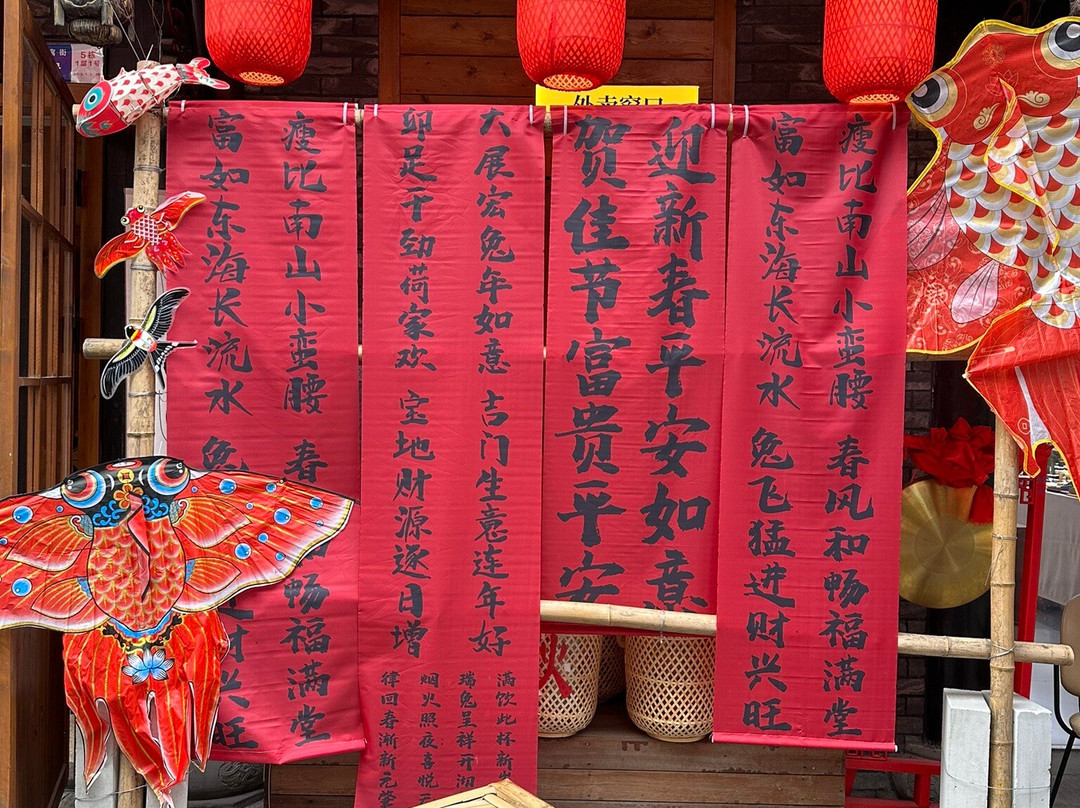 外卖窗口
5栋
1层1号
瘦比南山小蛮腰 春风和畅福满堂
富如东海长流水 兔飞猛进财兴旺
迎新春平安如意
贺佳节富贵平安
大展宏兔年如意 吉门生意连年好
卯足干劲荷家欢 宝地财源逐日增
满饮此杯新
瑞兔呈祥开湖
烟火照夜喜悦
律回春渐新元肇
瘦比南山小蛮腰 春 畅福满堂
富如东海长流水 兔 财兴旺